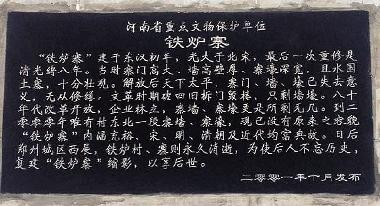 河南省重点文物保护单位
铁炉寨
“铁炉寨”建于东汉初年，光大于北宋，最后一次重修是
清光绪八年。当时寨门高大、墙高壁厚、寨壕深宽，且水围
土寨，十分壮观。解放后天下太平，寨门、墙、壕已失去意
义，无从修缮，文革时期砖四旧拆门毁楼，只剩墙壕。八十
年代改革开放，企业林立，寨墙、寨壕更是所剩无几。到二
零零零年唯有村东北一段寨墙、寨壕，现已没有原来之容貌
“铁炉寨”内涵充裕，宋、明、清朝及近代均富典故。日后
郑州城区西展，铁炉村、寨则永久消逝，为使后人不忘历史，
复建“铁炉寨”缩影，以享后世。
二零零一年 月发布